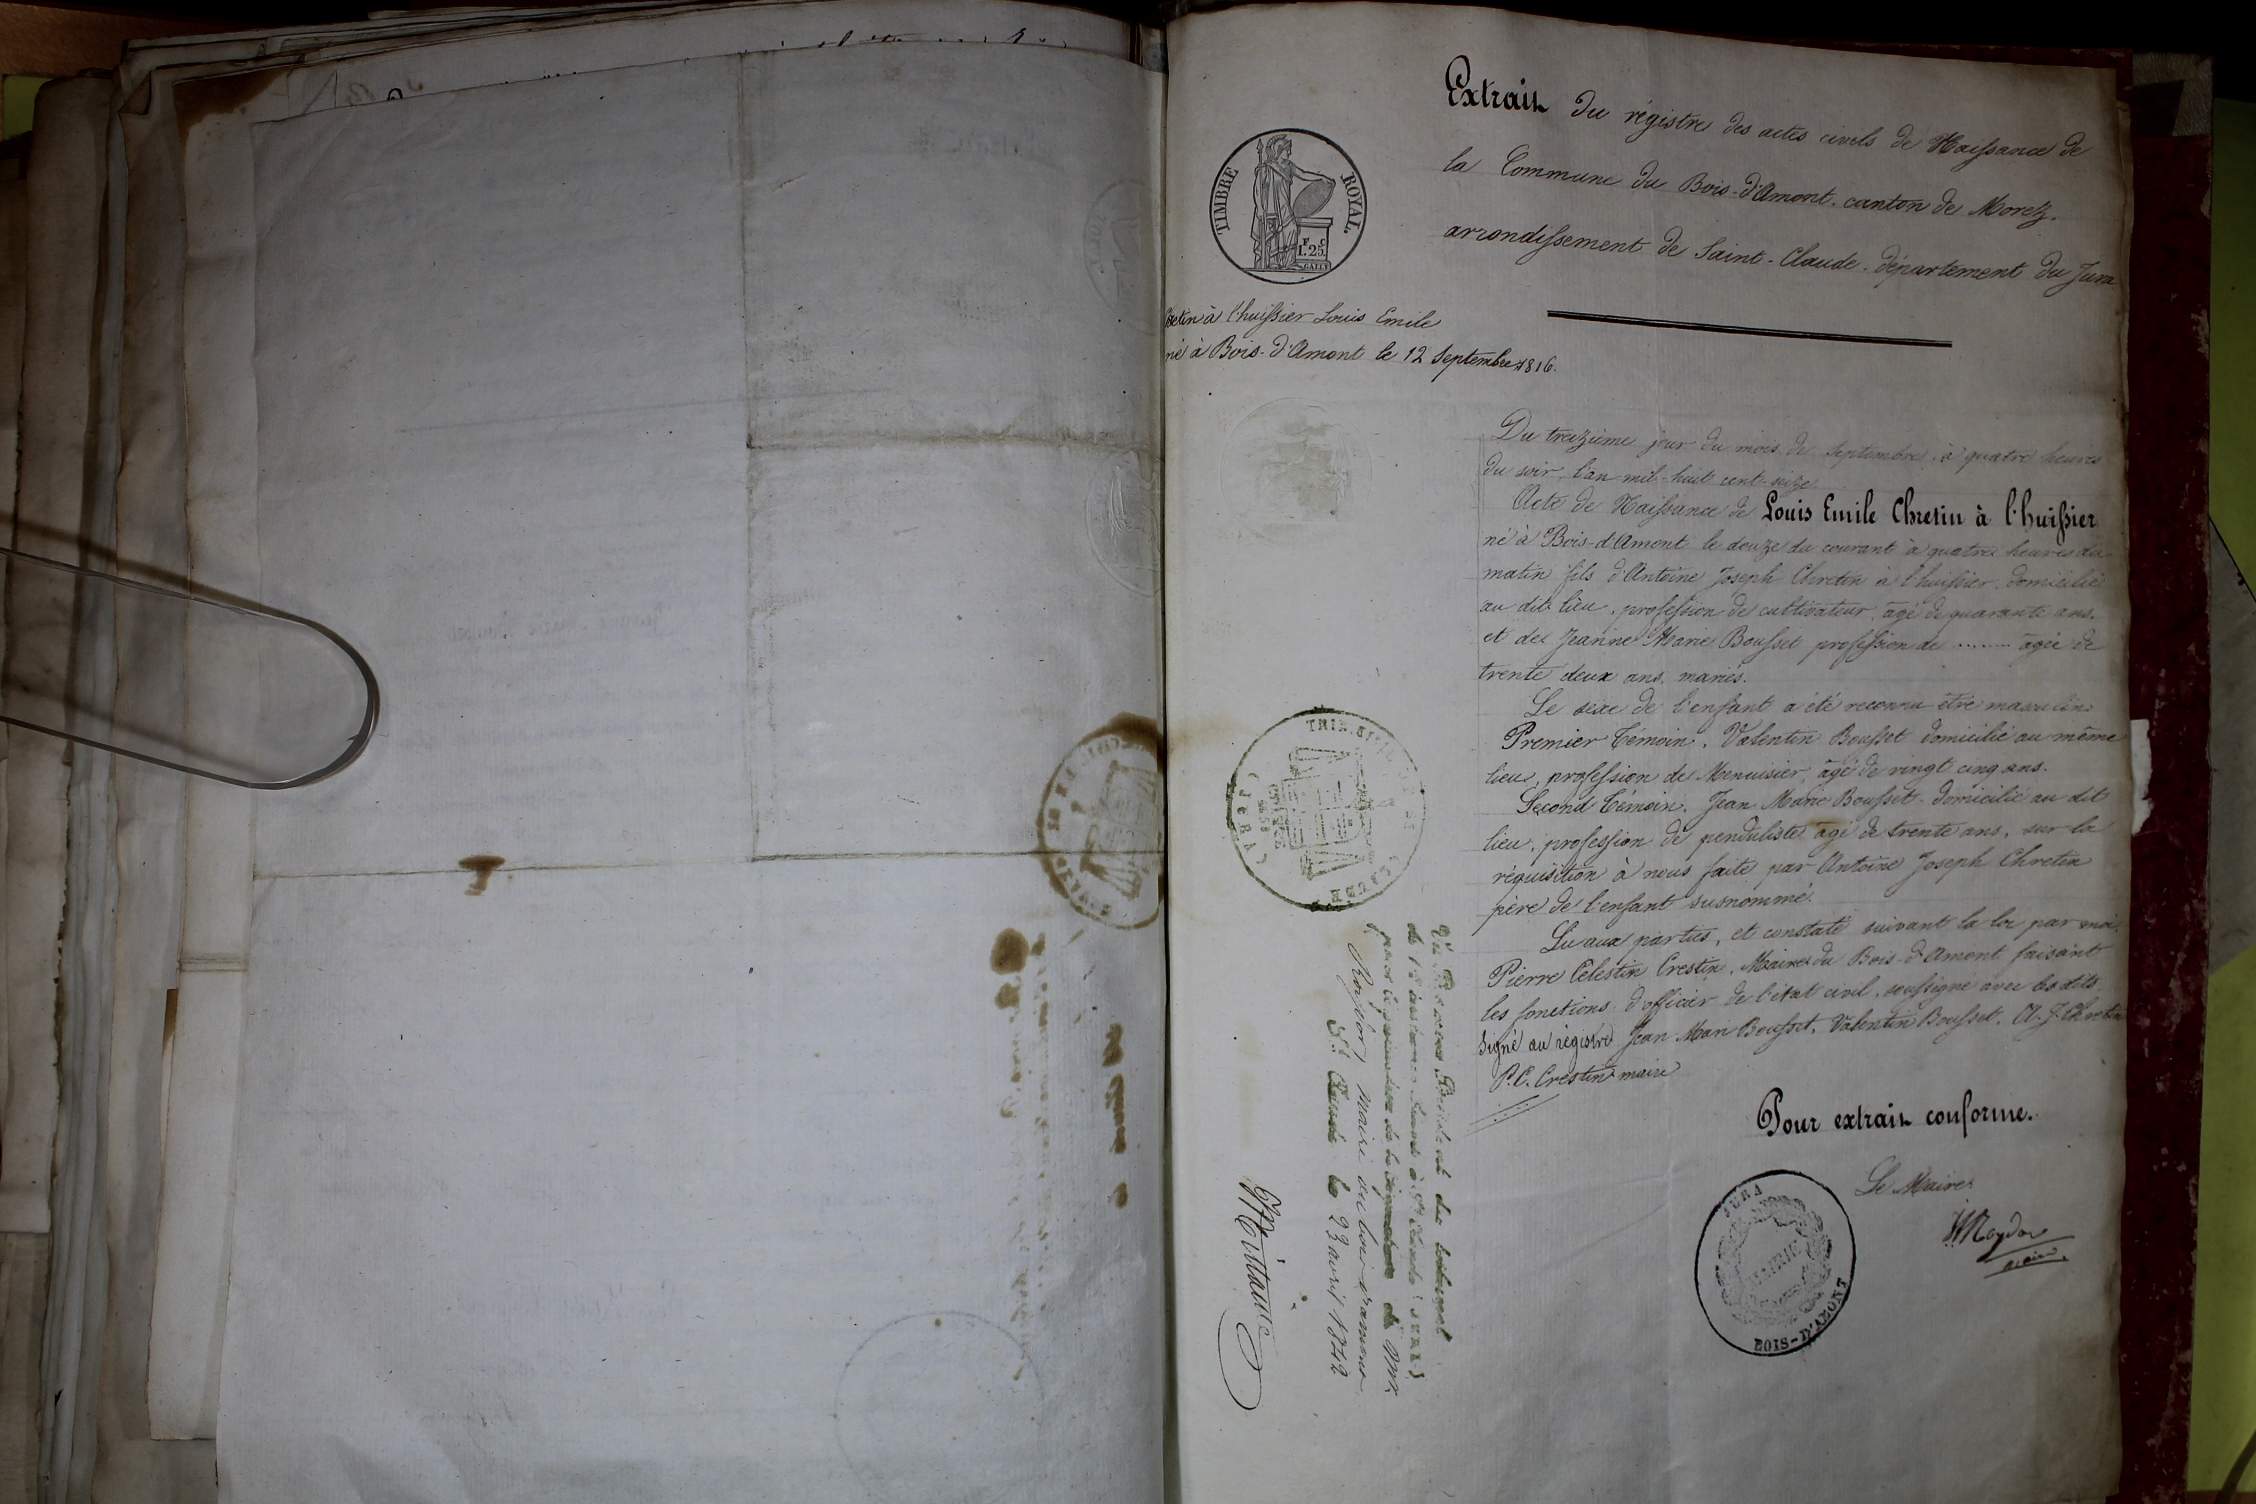 Extrait du régistre des actes civils de Naissance de
la Commune du Bois-d'Amont. canton de Morez.
arrondissement de Saint-Claude. département du Jura
TIMBRE ROYAL
F C
1.25
Chretin à l'huissier Louis Emile
né à Bois-d'Amont le 12 Septembre 1816.
Du treizième jour du mois de Septembre, à quatre heures
du soir, l'an mil-huit cent-seize.
Acte de Naissance de Louis Emile Chretin à l'huissier
né à Bois-d'Amont le douze du courant à quatre heures du
matin fils d'Antoine Joseph Chretin à l'huissier, domicilié
au dit lieu, profession de cultivateur, âgé de quarante ans.
et de Jeanne Marie Bousset profession de ........ agée de
trente deux ans, mariés.
Le sexe de l'enfant a été reconnu être masculin.
Premier témoin, Valentin Bousset domicilié au même
lieu, profession de Menuisier, âgé de vingt cinq ans.
Second témoin, Jean Marie Bousset domicilié au dit
lieu, profession de penduliste âgé de trente ans, sur la
réquisition à nous faite par Antoine Joseph Chretin
père de l'enfant susnommé.
Lu aux parties, et constaté suivant la loi par moi,
Pierre Célestin Crestin, Maire du Bois-d'Amont faisant
les fonctions d'officier de l'état civil, soussigné avec les dits
Signé au régistre Jean Mari Bousset, Valentin Bousset, A. J. Chretin
P. C. Crestin maire
Pour extrait conforme.
Le Maire
JURA
MAIRIE
BOIS-D'AMONT
Vu par nous Président du tribunal
de 1re instance séant à St Claude (JURA)
pour légalisation de la signature de Mr
maire du bois d'amont
St Claude le 23 avril 1842